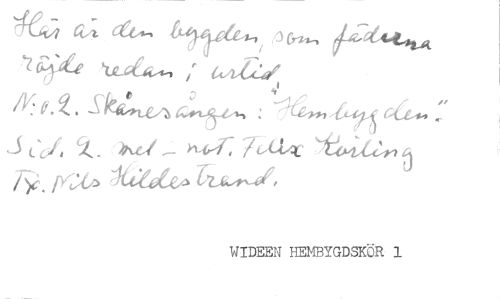 Här är den bygden, som fäderna
röjde redan i urtid,
N:o.2. Skånesången: "Hembygden".
Sid. 2. mel - not. Felix Körling
Tx. Nils Hildestrand.
WIDEEN HEMBYGDSKÖR 1